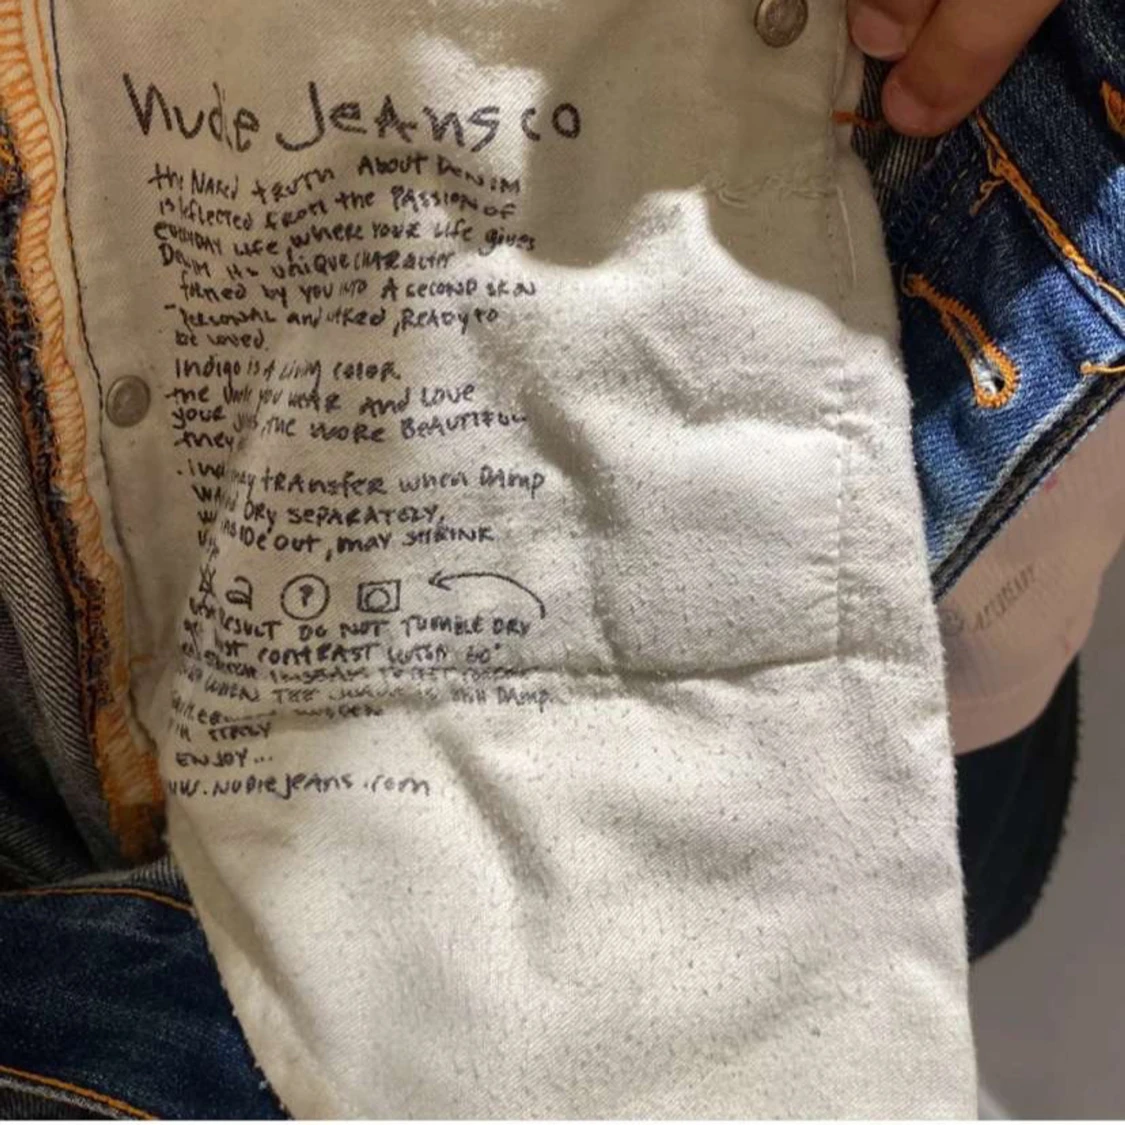 Nudie Jeans co
the NAKED tRUTH About DENIM
is reflected from the PASSION of
everyday Life where your Life gives
DENIM its UNIQUE CHARACTER
tuned by you INTO A second SKIN
PERSONAL and NAKED, READY to
be loved.
Indigo is A Living COLOR
the more you WEAR AND LOVE
your, THE MORE BEAUTIFUL
they
may tRAnsfer when DAmp
DRY SEPARATELY,
INSIDE OUT, may SHRINK
?
RESULT DO NOT TUMBLE DRY
CONTRAST WASH 60°
WHEN THE JEANS IS still DAmp.
IN ITALY
ENJOY...
WW.NUDIEJEANS.com